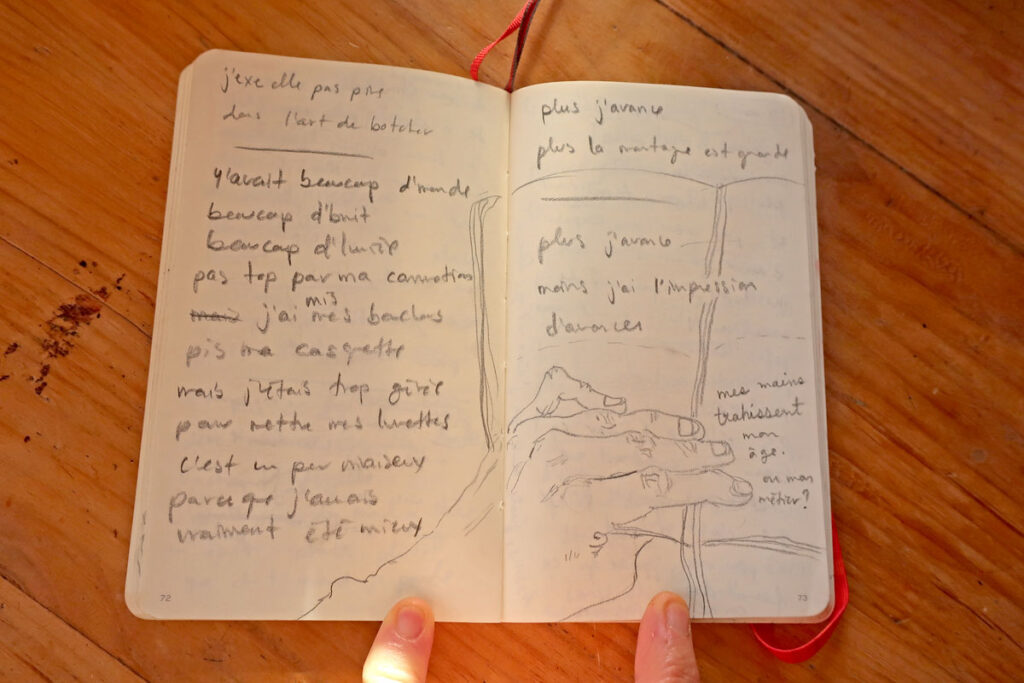 j'excelle pas pire
dans l'art de botcher
y'avait beaucoup d'monde
beaucoup d'bruit
beaucoup d'lumière
pas top par ma commotion
mais j'ai mis mes bouchons
pis ma casquette
mais j'étais trop gênée
pour mettre mes lunettes
c'est un peu niaiseux
parce que j'aurais
vraiment été mieux
72
plus j'avance
plus la montagne est grande
plus j'avance
moins j'ai l'impression
d'avancer
mes mains
trahissent
mon
âge.
ou mon
métier?
73